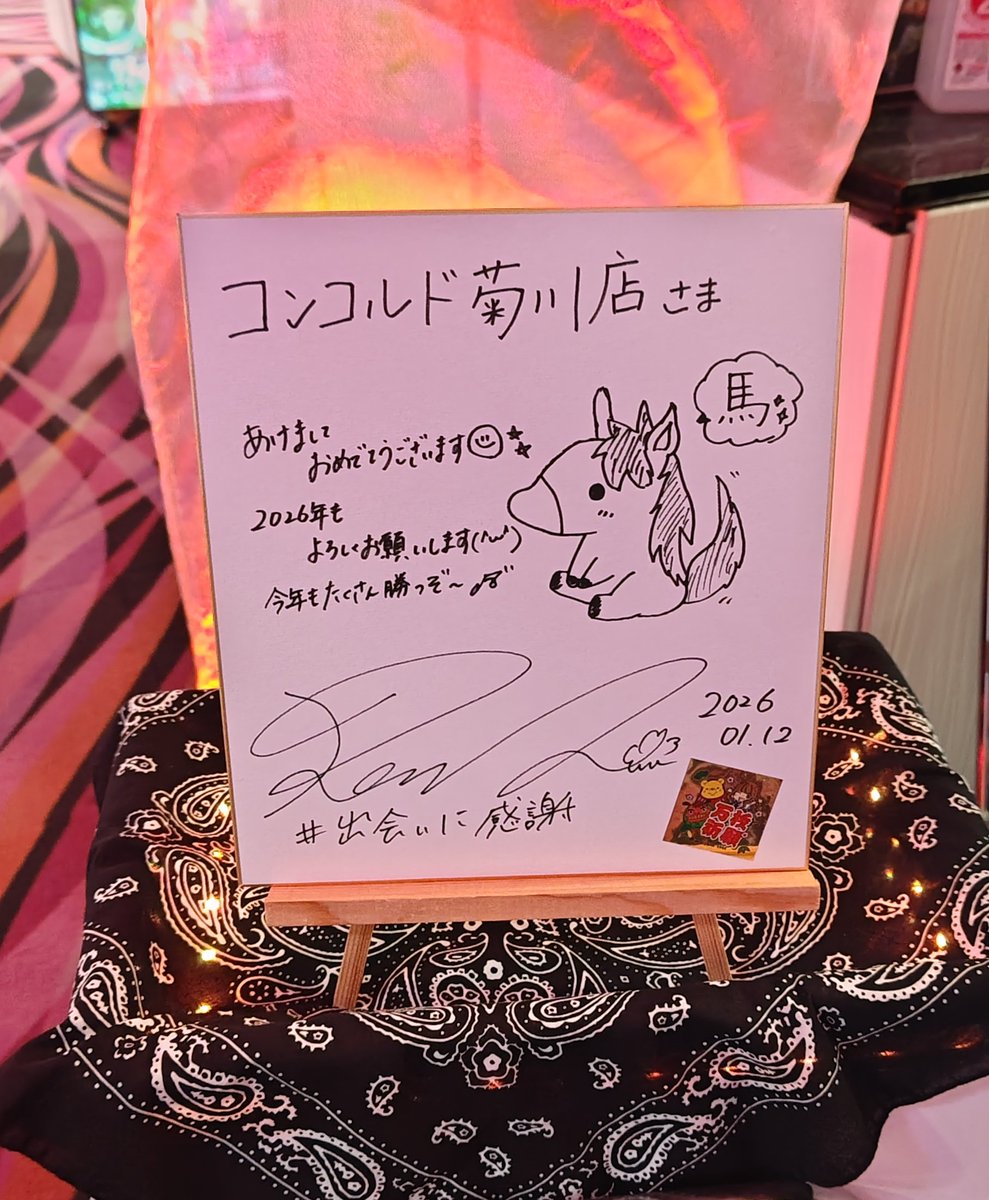 コンコルド菊川店さま
馬
あけまして
おめでとうございます
2026年も
よろしくお願いします(^^)
今年もたくさん勝つぞ〜
2026
01.12
#出会いに感謝
万枚
祈願